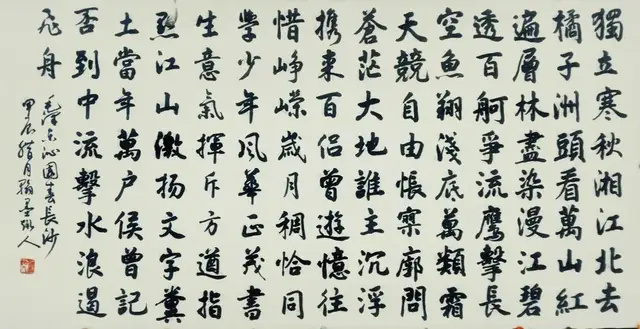 獨立寒秋湘江北去
橘子洲頭看萬山紅
遍層林盡染漫江碧
透百舸爭流鹰擊長
空魚翔淺底萬類霜
天競自由悵寥廓問
蒼茫大地誰主沉浮
携来百侣曾遊憶往
惜峥嵘歲月稠恰同
學少年風華正茂書
生意氣揮斥方遒指
點江山激扬文字糞
土當年萬户侯曾記
否到中流擊水浪遏
飛舟
毛澤东沁園春長沙
甲辰腊月翰墨人